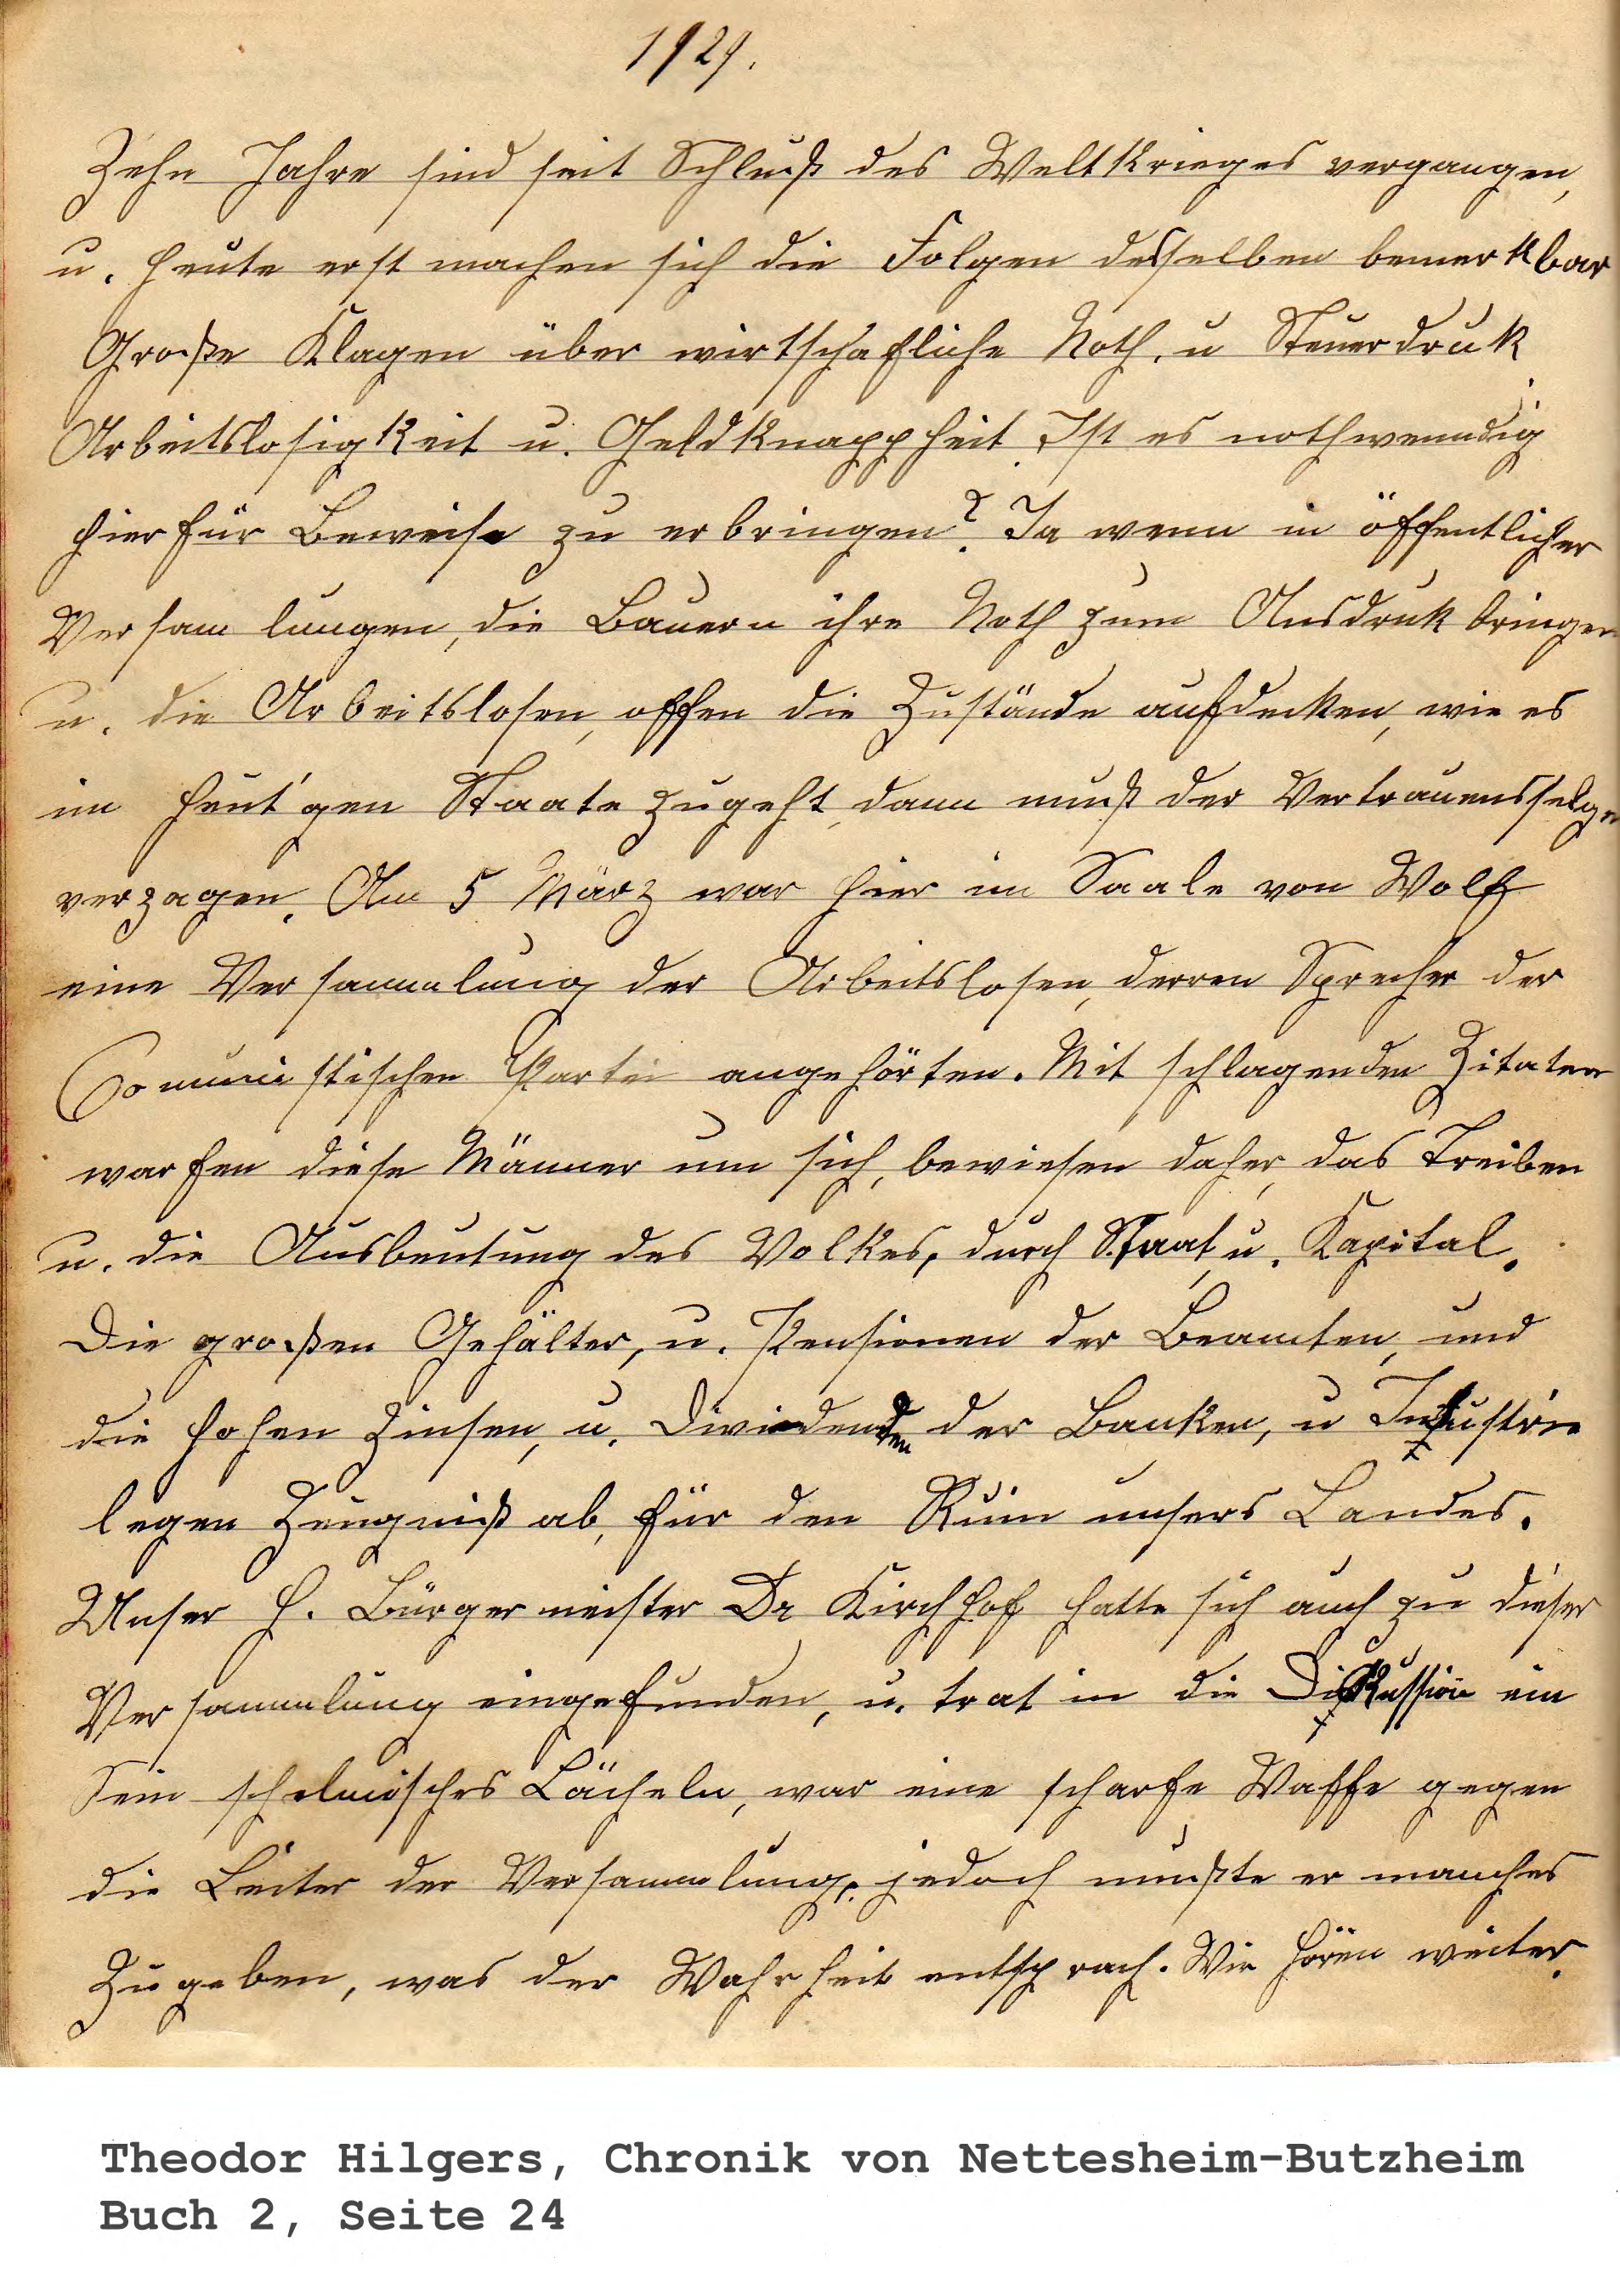 1929.
Zehn Jahre sind seit Schluß des Weltkrieges vergangen,
u. heute erst machen sich die Folgen desselben bemerkbar
Große Klagen über wirtschafliche Noth, u Steuerdruk
Arbeitslosigkeit u. Geldknappheit. Ist es nothwenndig
hierfür Beweise zu erbringen? Ja wenn in öffentlicher
Versamlungen, die Bauern ihre Noth zum Ausdruk bringen
u. die Arbeitslosen, offen die Zustände aufdecken, wie es
im heut'gen Staate zugeht, dann muß der Vertrauensselge
verzagen. Am 5 März war hier im Saale von Wolf
eine Versammlung der Arbeitslosen, derren Sprecher der
Comunistischen Partei angehörten. Mit schlagenden Zitaten
warfen diese Männer um sich, bewiesen daher, das Treiben
u. die Ausbeutung des Volkes, durch Staat, u. Kapital.
Die großen Gehälter, u. Pensionen der Beamten, und
die hohen Zinsen, u. Dividenden der Banken, u Industrie
legen Zeugniß ab, für den Ruin unsers Landes.
Unser H. Bürgermeister Dr Kirchhof hatte sich auch zu dieser
Versammlung eingefunden, u. trat in die Diskussion ein
Sein schelmisches Lächeln, war eine scharfe Waffe gegen
die Leiter der Versammlung, jedoch mußte er manches
Zugeben, was der Wahrheit entsprach. Wir hören weiter.
Theodor Hilgers, Chronik von Nettesheim-Butzheim
Buch 2, Seite 24